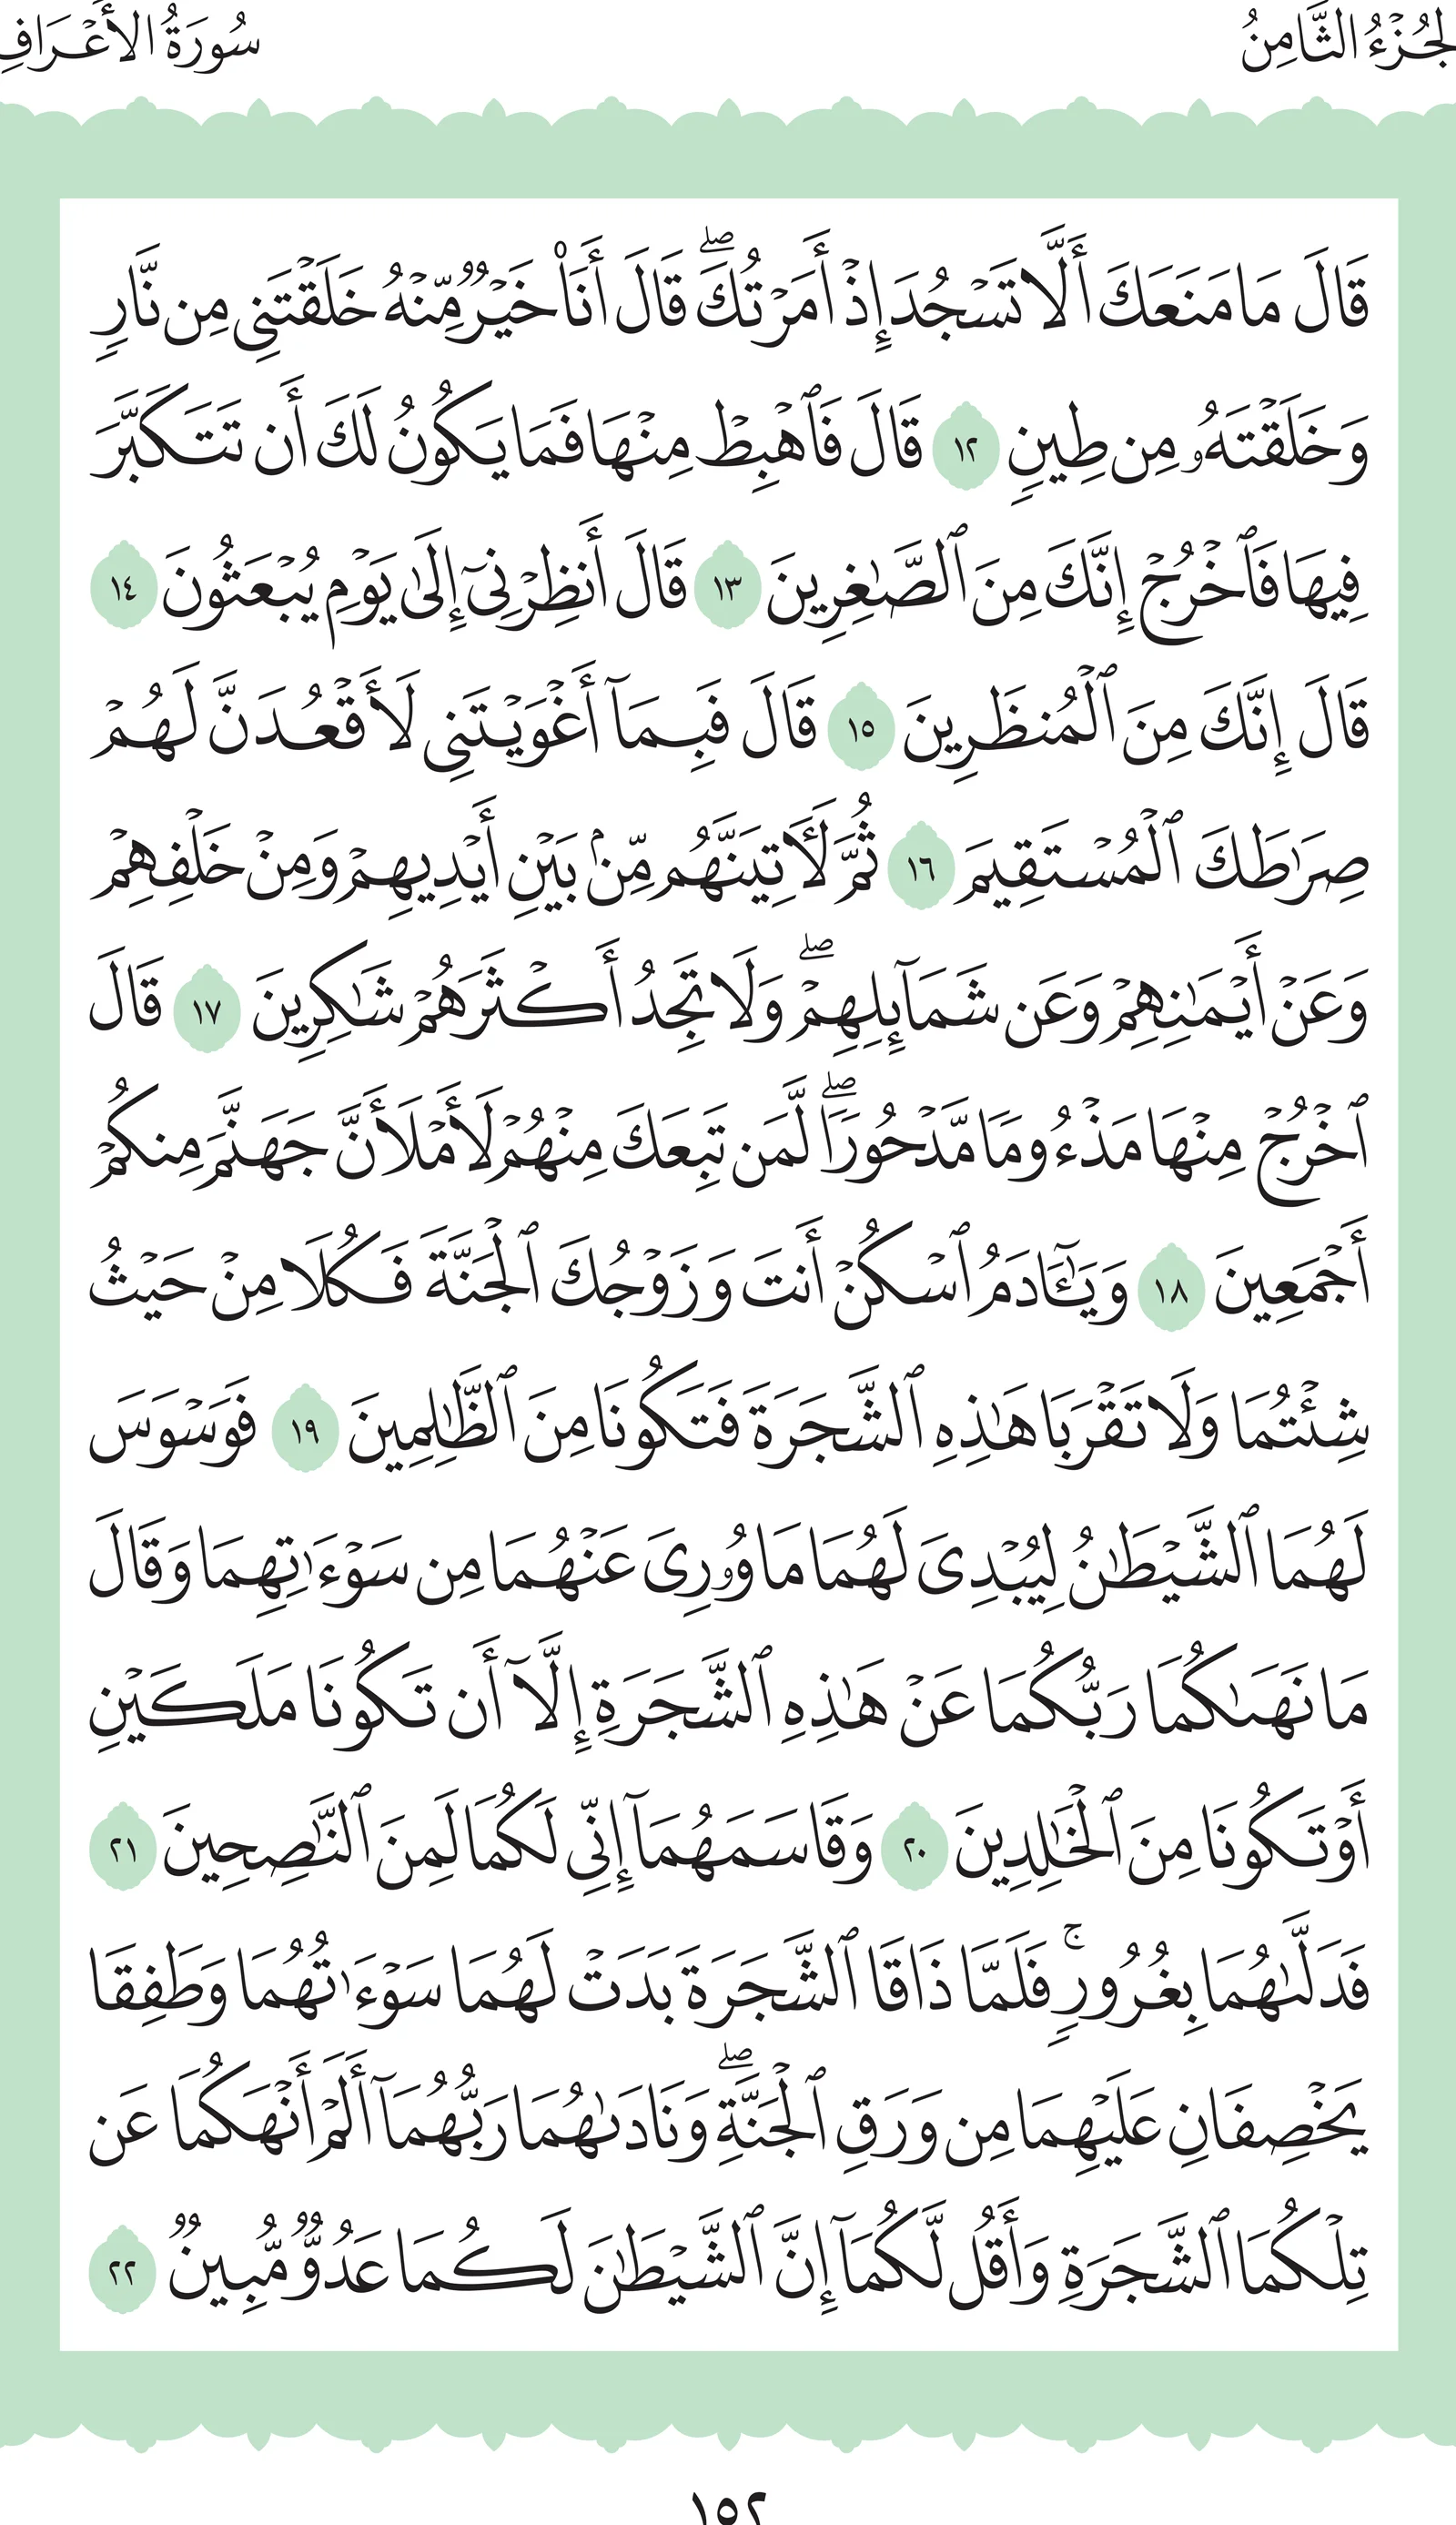 الجُزْءُ الثَّامِنُ سُورَةُ الأَعْرَافِ
قَالَ مَا مَنَعَكَ أَلَّا تَسْجُدَ إِذْ أَمَرْتُكَۖ قَالَ أَنَا۠ خَيْرٌ مِّنْهُ خَلَقْتَنِى مِن نَّارٍ
وَخَلَقْتَهُۥ مِن طِينٍ ١٢ قَالَ فَٱهْبِطْ مِنْهَا فَمَا يَكُونُ لَكَ أَن تَتَكَبَّرَ
فِيهَا فَٱخْرُجْ إِنَّكَ مِنَ ٱلصَّٰغِرِينَ ١٣ قَالَ أَنظِرْنِىٓ إِلَىٰ يَوْمِ يُبْعَثُونَ ١٤
قَالَ إِنَّكَ مِنَ ٱلْمُنظَرِينَ ١٥ قَالَ فَبِمَآ أَغْوَيْتَنِى لَأَقْعُدَنَّ لَهُمْ
صِرَٰطَكَ ٱلْمُسْتَقِيمَ ١٦ ثُمَّ لَأَتِيَنَّهُم مِّنۢ بَيْنِ أَيْدِيهِمْ وَمِنْ خَلْفِهِمْ
وَعَنْ أَيْمَٰنِهِمْ وَعَن شَمَآئِلِهِمْۖ وَلَا تَجِدُ أَكْثَرَهُمْ شَٰكِرِينَ ١٧ قَالَ
ٱخْرُجْ مِنْهَا مَذْءُومًا مَّدْحُورًاۖ لَّمَن تَبِعَكَ مِنْهُمْ لَأَمْلَأَنَّ جَهَنَّمَ مِنكُمْ
أَجْمَعِينَ ١٨ وَيَٰٓـَٔادَمُ ٱسْكُنْ أَنتَ وَزَوْجُكَ ٱلْجَنَّةَ فَكُلَا مِنْ حَيْثُ
شِئْتُمَا وَلَا تَقْرَبَا هَٰذِهِ ٱلشَّجَرَةَ فَتَكُونَا مِنَ ٱلظَّٰلِمِينَ ١٩ فَوَسْوَسَ
لَهُمَا ٱلشَّيْطَٰنُ لِيُبْدِىَ لَهُمَا مَا وُۥرِىَ عَنْهُمَا مِن سَوْءَٰتِهِمَا وَقَالَ
مَا نَهَىٰكُمَا رَبُّكُمَا عَنْ هَٰذِهِ ٱلشَّجَرَةِ إِلَّآ أَن تَكُونَا مَلَكَيْنِ
أَوْ تَكُونَا مِنَ ٱلْخَٰلِدِينَ ٢٠ وَقَاسَمَهُمَآ إِنِّى لَكُمَا لَمِنَ ٱلنَّٰصِحِينَ ٢١
فَدَلَّىٰهُمَا بِغُرُورٍۚ فَلَمَّا ذَاقَا ٱلشَّجَرَةَ بَدَتْ لَهُمَا سَوْءَٰتُهُمَا وَطَفِقَا
يَخْصِفَانِ عَلَيْهِمَا مِن وَرَقِ ٱلْجَنَّةِۖ وَنَادَىٰهُمَا رَبُّهُمَآ أَلَمْ أَنْهَكُمَا عَن
تِلْكُمَا ٱلشَّجَرَةِ وَأَقُل لَّكُمَآ إِنَّ ٱلشَّيْطَٰنَ لَكُمَا عَدُوٌّ مُّبِينٌ ٢٢
١٥٢